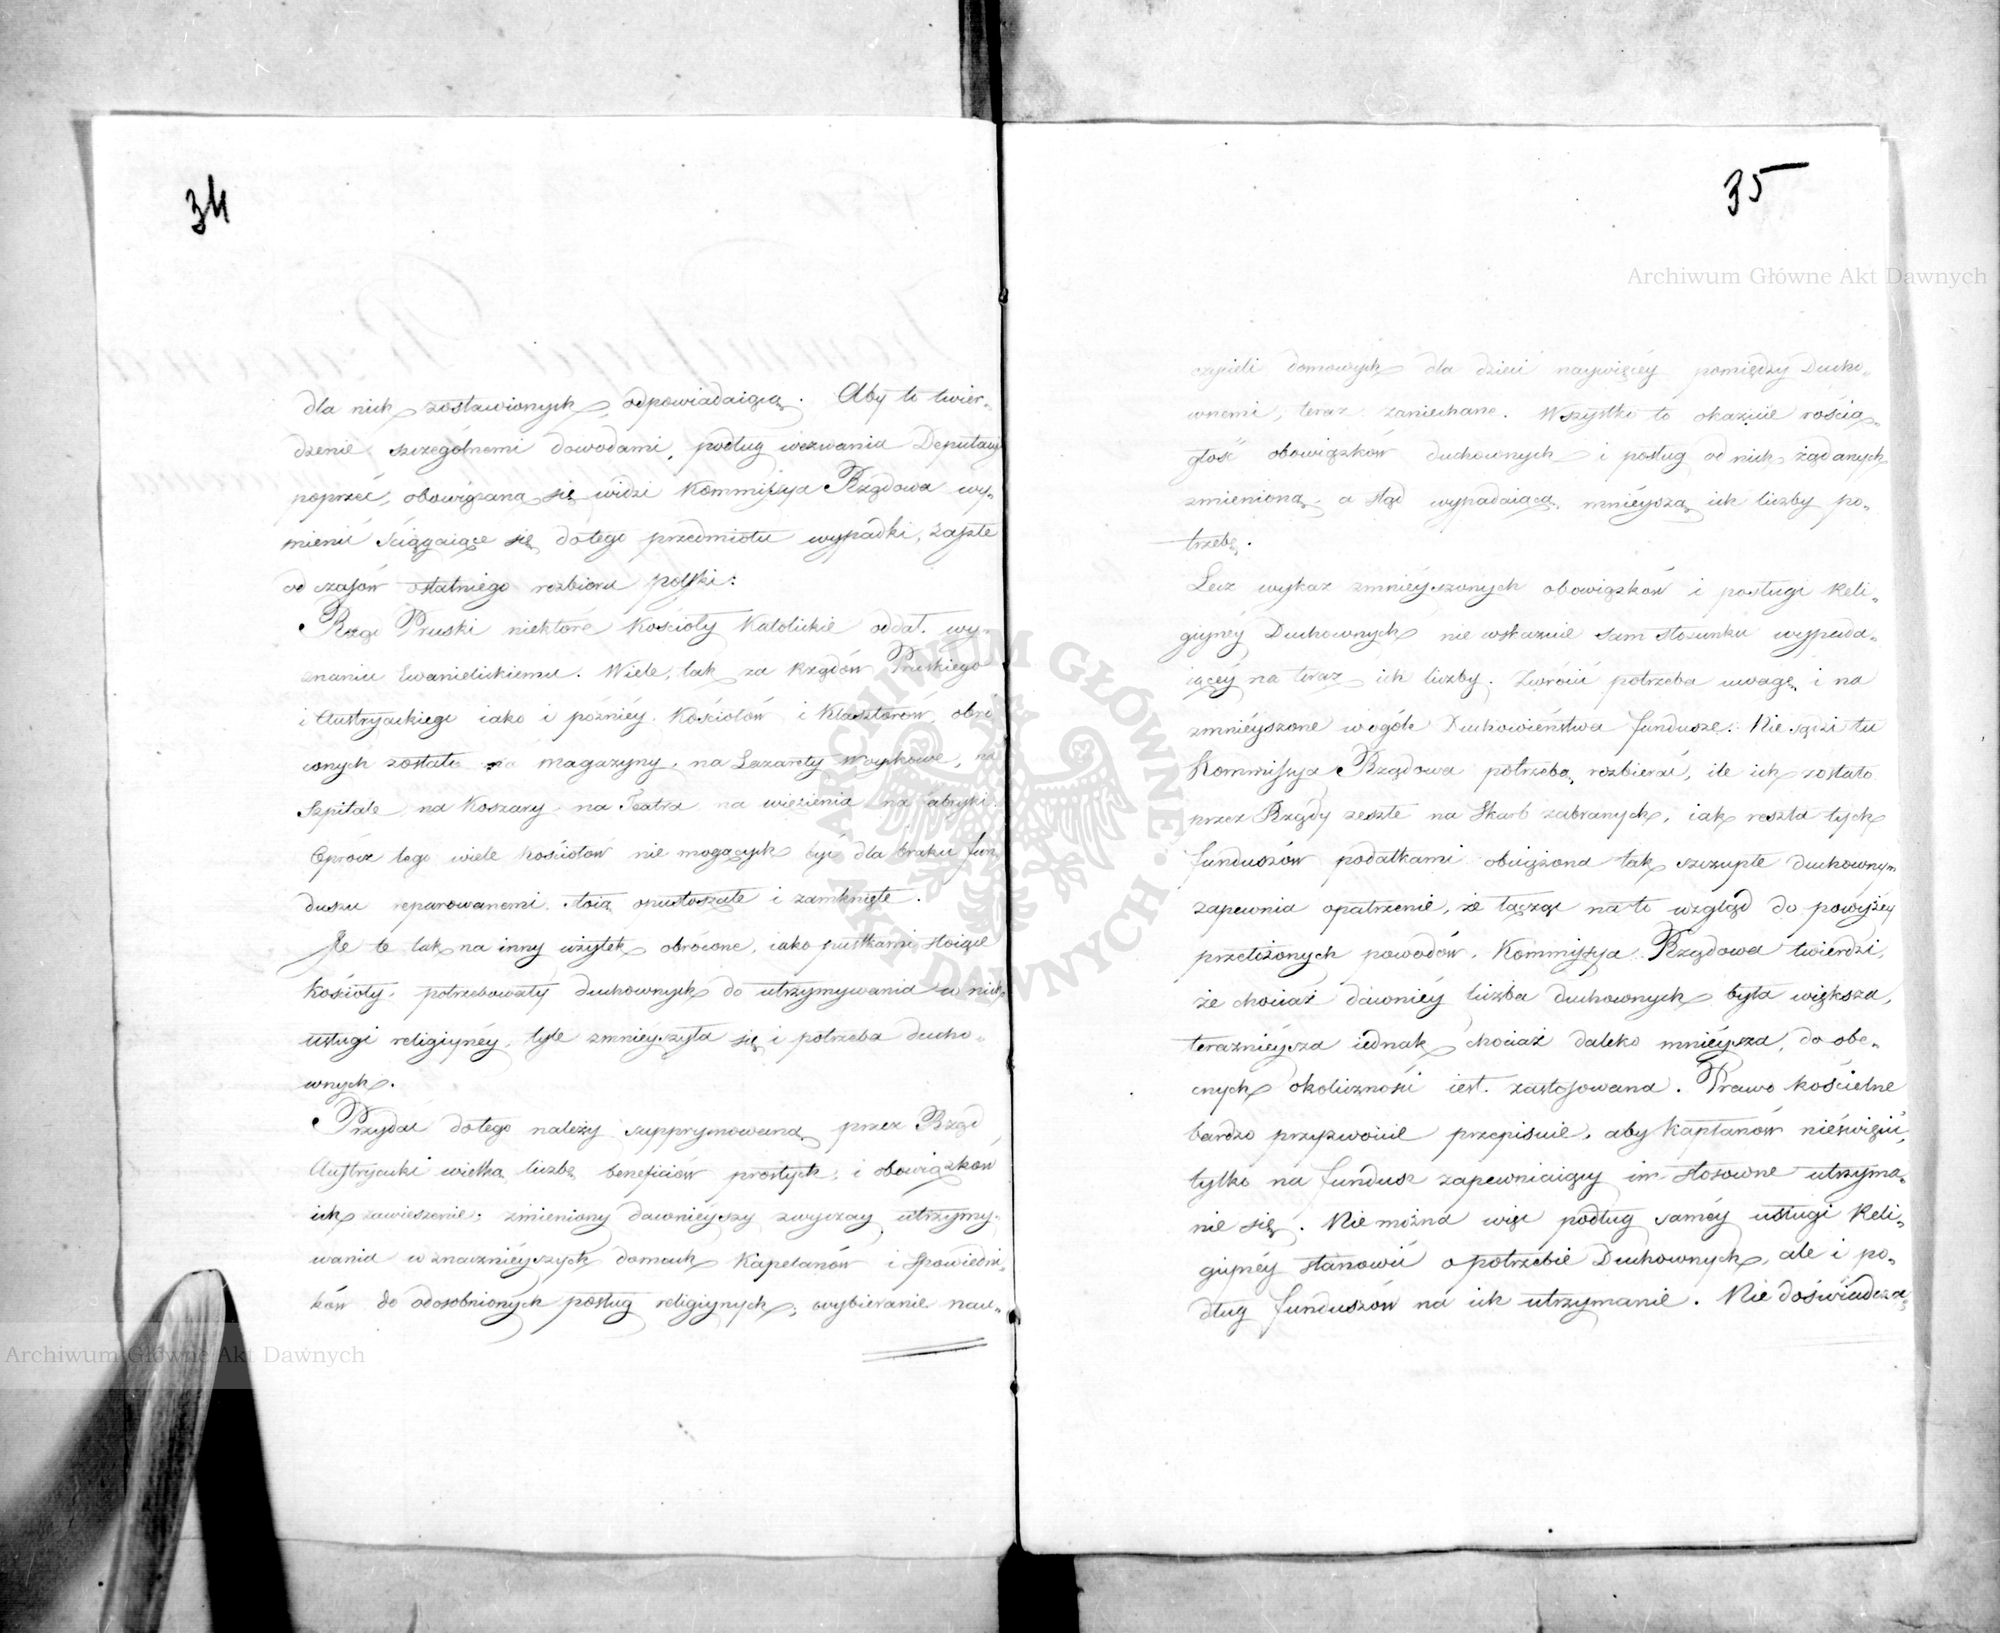 34
dla nich zostawionych, odpowiadaiącą. Aby to twier„
dzenie szczególnemi dowodami, podług wezwania Deputacyi
poprzeć, obowiązaną się widzi Kommissya Rządowa wy„
mienić ściągaiące się do tego przedmiotu wypadki, zaszłe
od czasów ostatniego rozbioru Polski:
Rząd Pruski niektóre Kościoły Katolickie oddał wy„
znaniu Ewanielickiemu. Wiele, tak za Rządów Pruskiego
i Austryackiego iako i poźniéy Kościołów i Klasztorów, obró
conych zostało na magazyny, na Lazarety Woyskowe, na
Szpitale, na Koszary, na Teatra, na więzienia na fabryki.
Oprócz tego wiele Kościołów nie mogących być dla braku fun„
duszu reparowanemi, stoią opustoszałe i zamknięte.
Ile te tak na inny użytek obrócone, iako pustkami stoiące
Kościoły, potrzebowały duchownych do utrzymywania w nich
usługi religiynéy, tyle zmnieyszyła się i potrzeba ducho„
wnych.
Przydać do tego należy supprymowaną przez Rząd
Austryacki wielką liczbę beneficiów prostych, i obowiązków
ich zawieszenie; zmieniony dawnieyszy zwyczay utrzymy„
wania w znacznieyszych domach Kapelanów i Spowiedni„
ków do odosobnionych posług religiynych; wybieranie nau„
35
czycieli domowych dla dzieci naywięcéy pomiędzy Ducho„
wnemi, teraz zaniechane. Wszystko to okazuie rością„
głość obowiązków duchownych i posług od nich żądanych
zmienioną, a stąd wypadaiącą mnieyszą ich liczby po„
trzebę.
Lecz wykaz zmnieyszonych obowiązków i posługi Reli„
giynéy Duchownych nie wskazuie sam stosunku wypada„
iącéy na teraz ich liczby. Zwrócić potrzeba uwagę i na
zmnieyszone w ogóle Duchowieństwa fundusze. Nie sądzi tu
Kommissya Rządowa potrzebą rozbierać, ile ich zostało
przez Rządy zeszłe na Skarb zabranych, iak reszta tych
funduszów podatkami obciążona tak szczupłe duchownym
zapewnia opatrzenie, że łącząc na to wzgląd do powyżéy
przełożonych powodów, Kommissya Rządowa twierdzi,
że chociaż dawniéy liczba duchownych była większa,
teraznieysza iednak chociaż daleko mnieysza, do obe„
cnych okoliczności iest zastosowana. Prawo kościelne
bardzo przyzwoicie przepisuie, aby Kapłanów nieświęcić,
tylko na fundusz zapewniaiący im stosowne utrzyma„
nie się. Nie można więc podług saméy usługi Reli„
giynéy stanowić o potrzebie Duchownych, ale i po„
dług funduszów na ich utrzymanie. Nie doświadcza„
Archiwum Główne Akt Dawnych
Archiwum Główne Akt Dawnych
ARCHIWUM GŁÓWNE AKT DAWNYCH